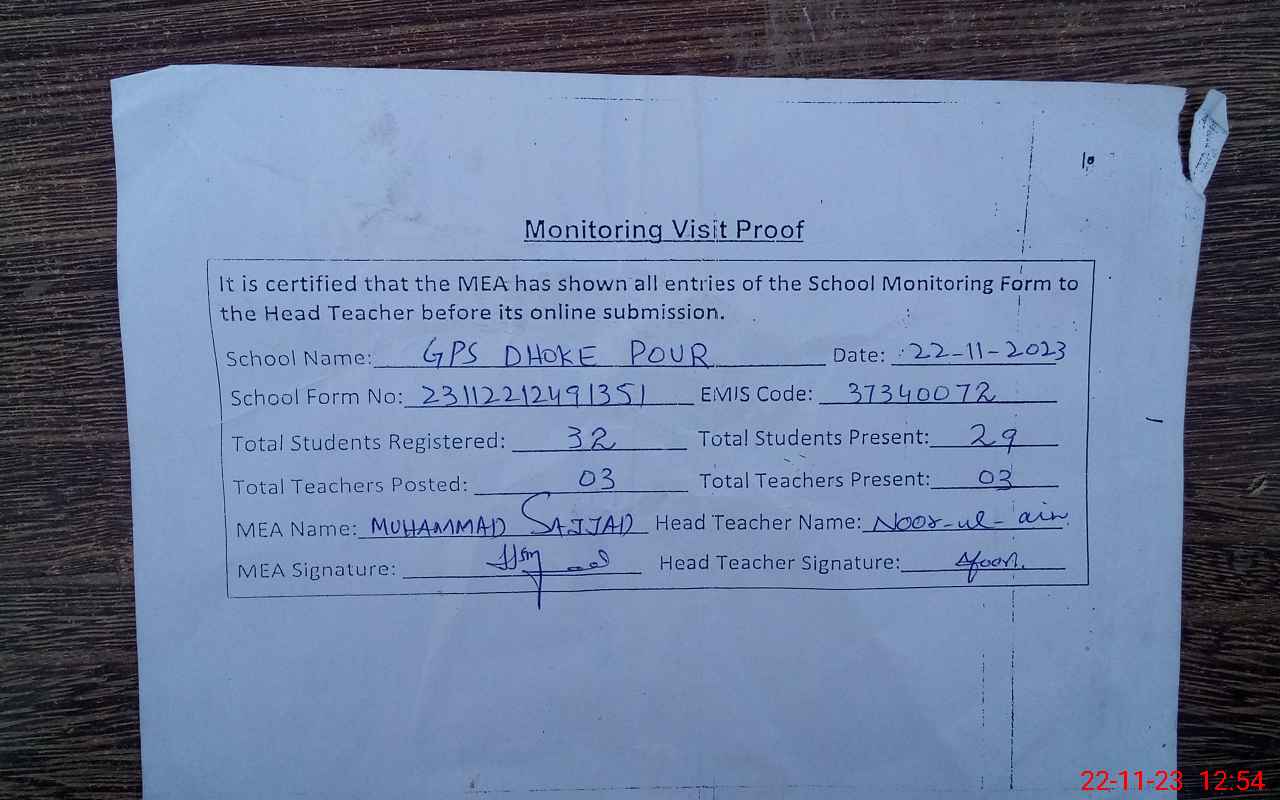 Monitoring Visit Proof
It is certified that the MEA has shown all entries of the School Monitoring Form to
the Head Teacher before its online submission.
School Name: GPS DHOKE POUR Date: 22-11-2023
School Form No: 23112212491351 EMIS Code: 37340072
Total Students Registered: 32 Total Students Present: 29
Total Teachers Posted: 03 Total Teachers Present: 03
MEA Name: MUHAMMAD SAJJAD Head Teacher Name: Noor-ul-ain
MEA Signature: Head Teacher Signature:
22-11-23 12:54